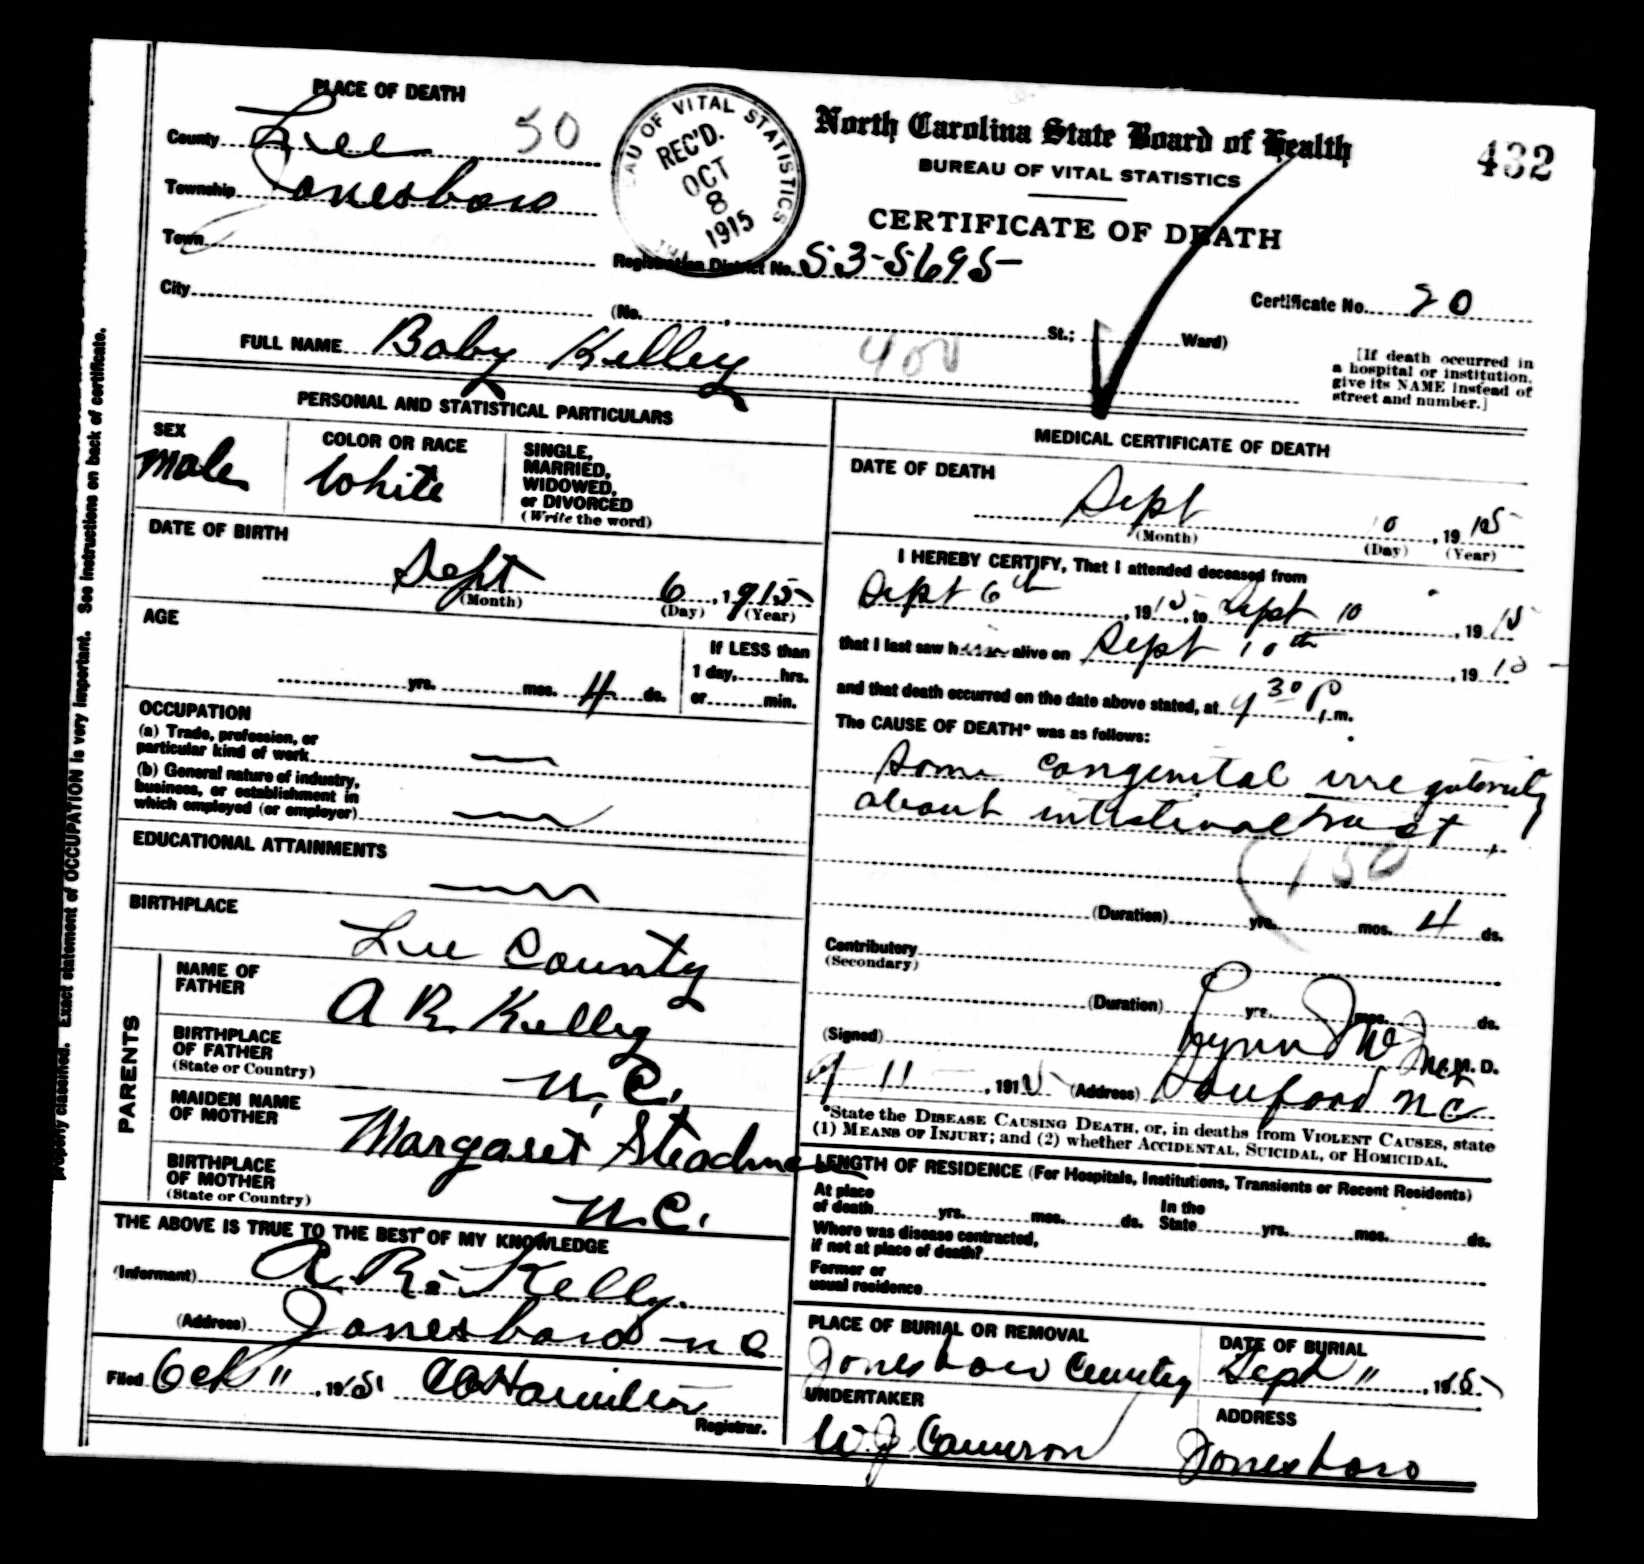 PLACE OF DEATH
County Lee 50
Township Jonesboro
Town
City
(No. , St.; Ward)
BUREAU OF VITAL STATISTICS
REC'D.
OCT
8
1915
North Carolina State Board of Health
BUREAU OF VITAL STATISTICS
CERTIFICATE OF DEATH
432
Registration District No. 53-5695
Certificate No. 20
FULL NAME Baby Kelley 400
[If death occurred in
a hospital or institution,
give its NAME instead of
street and number.]
PERSONAL AND STATISTICAL PARTICULARS
SEX
male
COLOR OR RACE
White
SINGLE,
MARRIED,
WIDOWED,
or DIVORCED
(Write the word)
DATE OF BIRTH
Sept 6, 1915
(Month) (Day) (Year)
AGE
yrs. mos. 4 ds.
If LESS than
1 day, hrs.
or min.
OCCUPATION
(a) Trade, profession, or
particular kind of work
(b) General nature of industry,
business, or establishment in
which employed (or employer)
EDUCATIONAL ATTAINMENTS
BIRTHPLACE
Lee County
PARENTS
NAME OF
FATHER
A R. Kelley
BIRTHPLACE
OF FATHER
(State or Country)
N. C.
MAIDEN NAME
OF MOTHER
Margaret
BIRTHPLACE
OF MOTHER
(State or Country)
N. C.
THE ABOVE IS TRUE TO THE BEST OF MY KNOWLEDGE
(Informant) A. R. Kelly.
(Address) Jonesboro N C
Filed Oct 11, 1915 Hamilton
Registrar.
MEDICAL CERTIFICATE OF DEATH
DATE OF DEATH
Sept 10, 1915
(Month) (Day) (Year)
I HEREBY CERTIFY, That I attended deceased from
Sept 6th, 1915, to Sept 10, 1915
that I last saw him alive on Sept 10th, 1915
and that death occurred on the date above stated, at 30 P. m.
The CAUSE OF DEATH* was as follows:
Some congenital irregularity
about intestinal tract,
150
(Duration) yrs. mos. 4 ds.
Contributory
(Secondary)
(Duration) yrs. mos. ds.
(Signed) Lynn M. D.
9-11-, 1915 (Address) Sanford N C
*State the DISEASE CAUSING DEATH, or, in deaths from VIOLENT CAUSES, state
(1) MEANS OF INJURY; and (2) whether ACCIDENTAL, SUICIDAL, or HOMICIDAL.
LENGTH OF RESIDENCE (For Hospitals, Institutions, Transients or Recent Residents)
At place
of death yrs. mos. ds.
In the
State yrs. mos. ds.
Where was disease contracted,
if not at place of death?
Former or
usual residence
PLACE OF BURIAL OR REMOVAL
Jonesboro Cemetery
DATE OF BURIAL
Sept 11, 1915
UNDERTAKER
W. J. Cameron
ADDRESS
Jonesboro
properly classified. Exact statement of OCCUPATION is very important. See instructions on back of certificate.